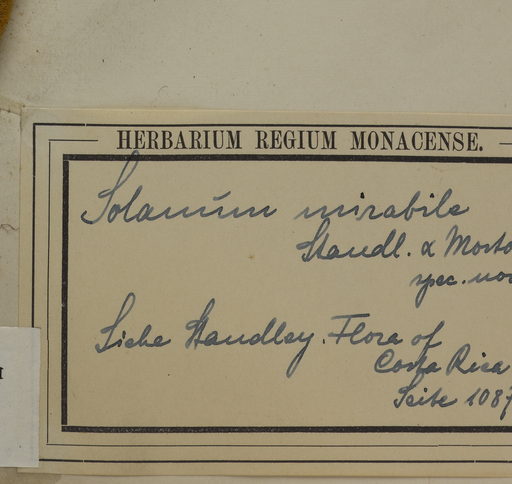 HERBARIUM REGIUM MONACENSE.
Solanum mirabile
Standl. & Morto
spec. nov
Siehe Standley. Flora of
Costa Rica
Seite 1087